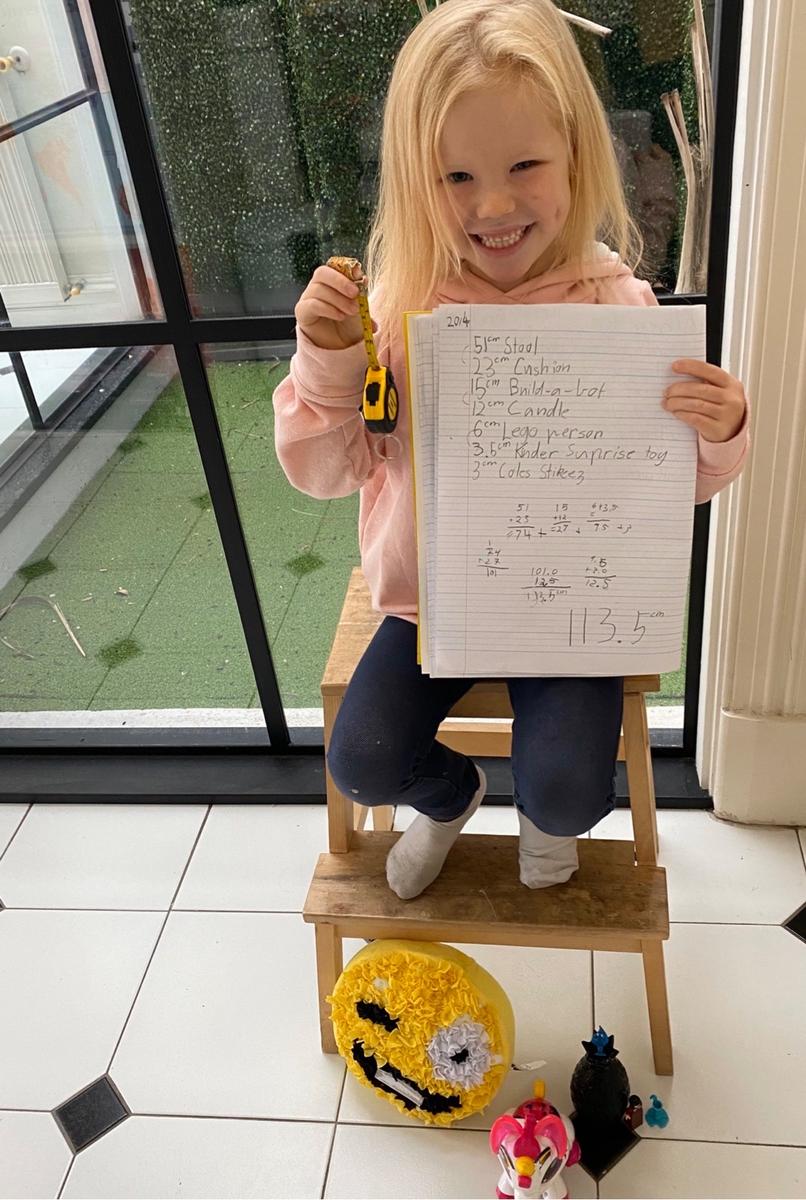 2014
51cm Stool
23cm Cushion
15cm Build-a-bot
12cm Candle
6cm Lego person
3.5cm Kinder Surprise toy
3cm Coles Stikeez
51 15 6+3.5
+23 +12 =
=74 + =27 + 9.5 +3
1
74
+27
101
9.5
+3.0
12.5
101.0
12.5
113.5cm
113.5cm